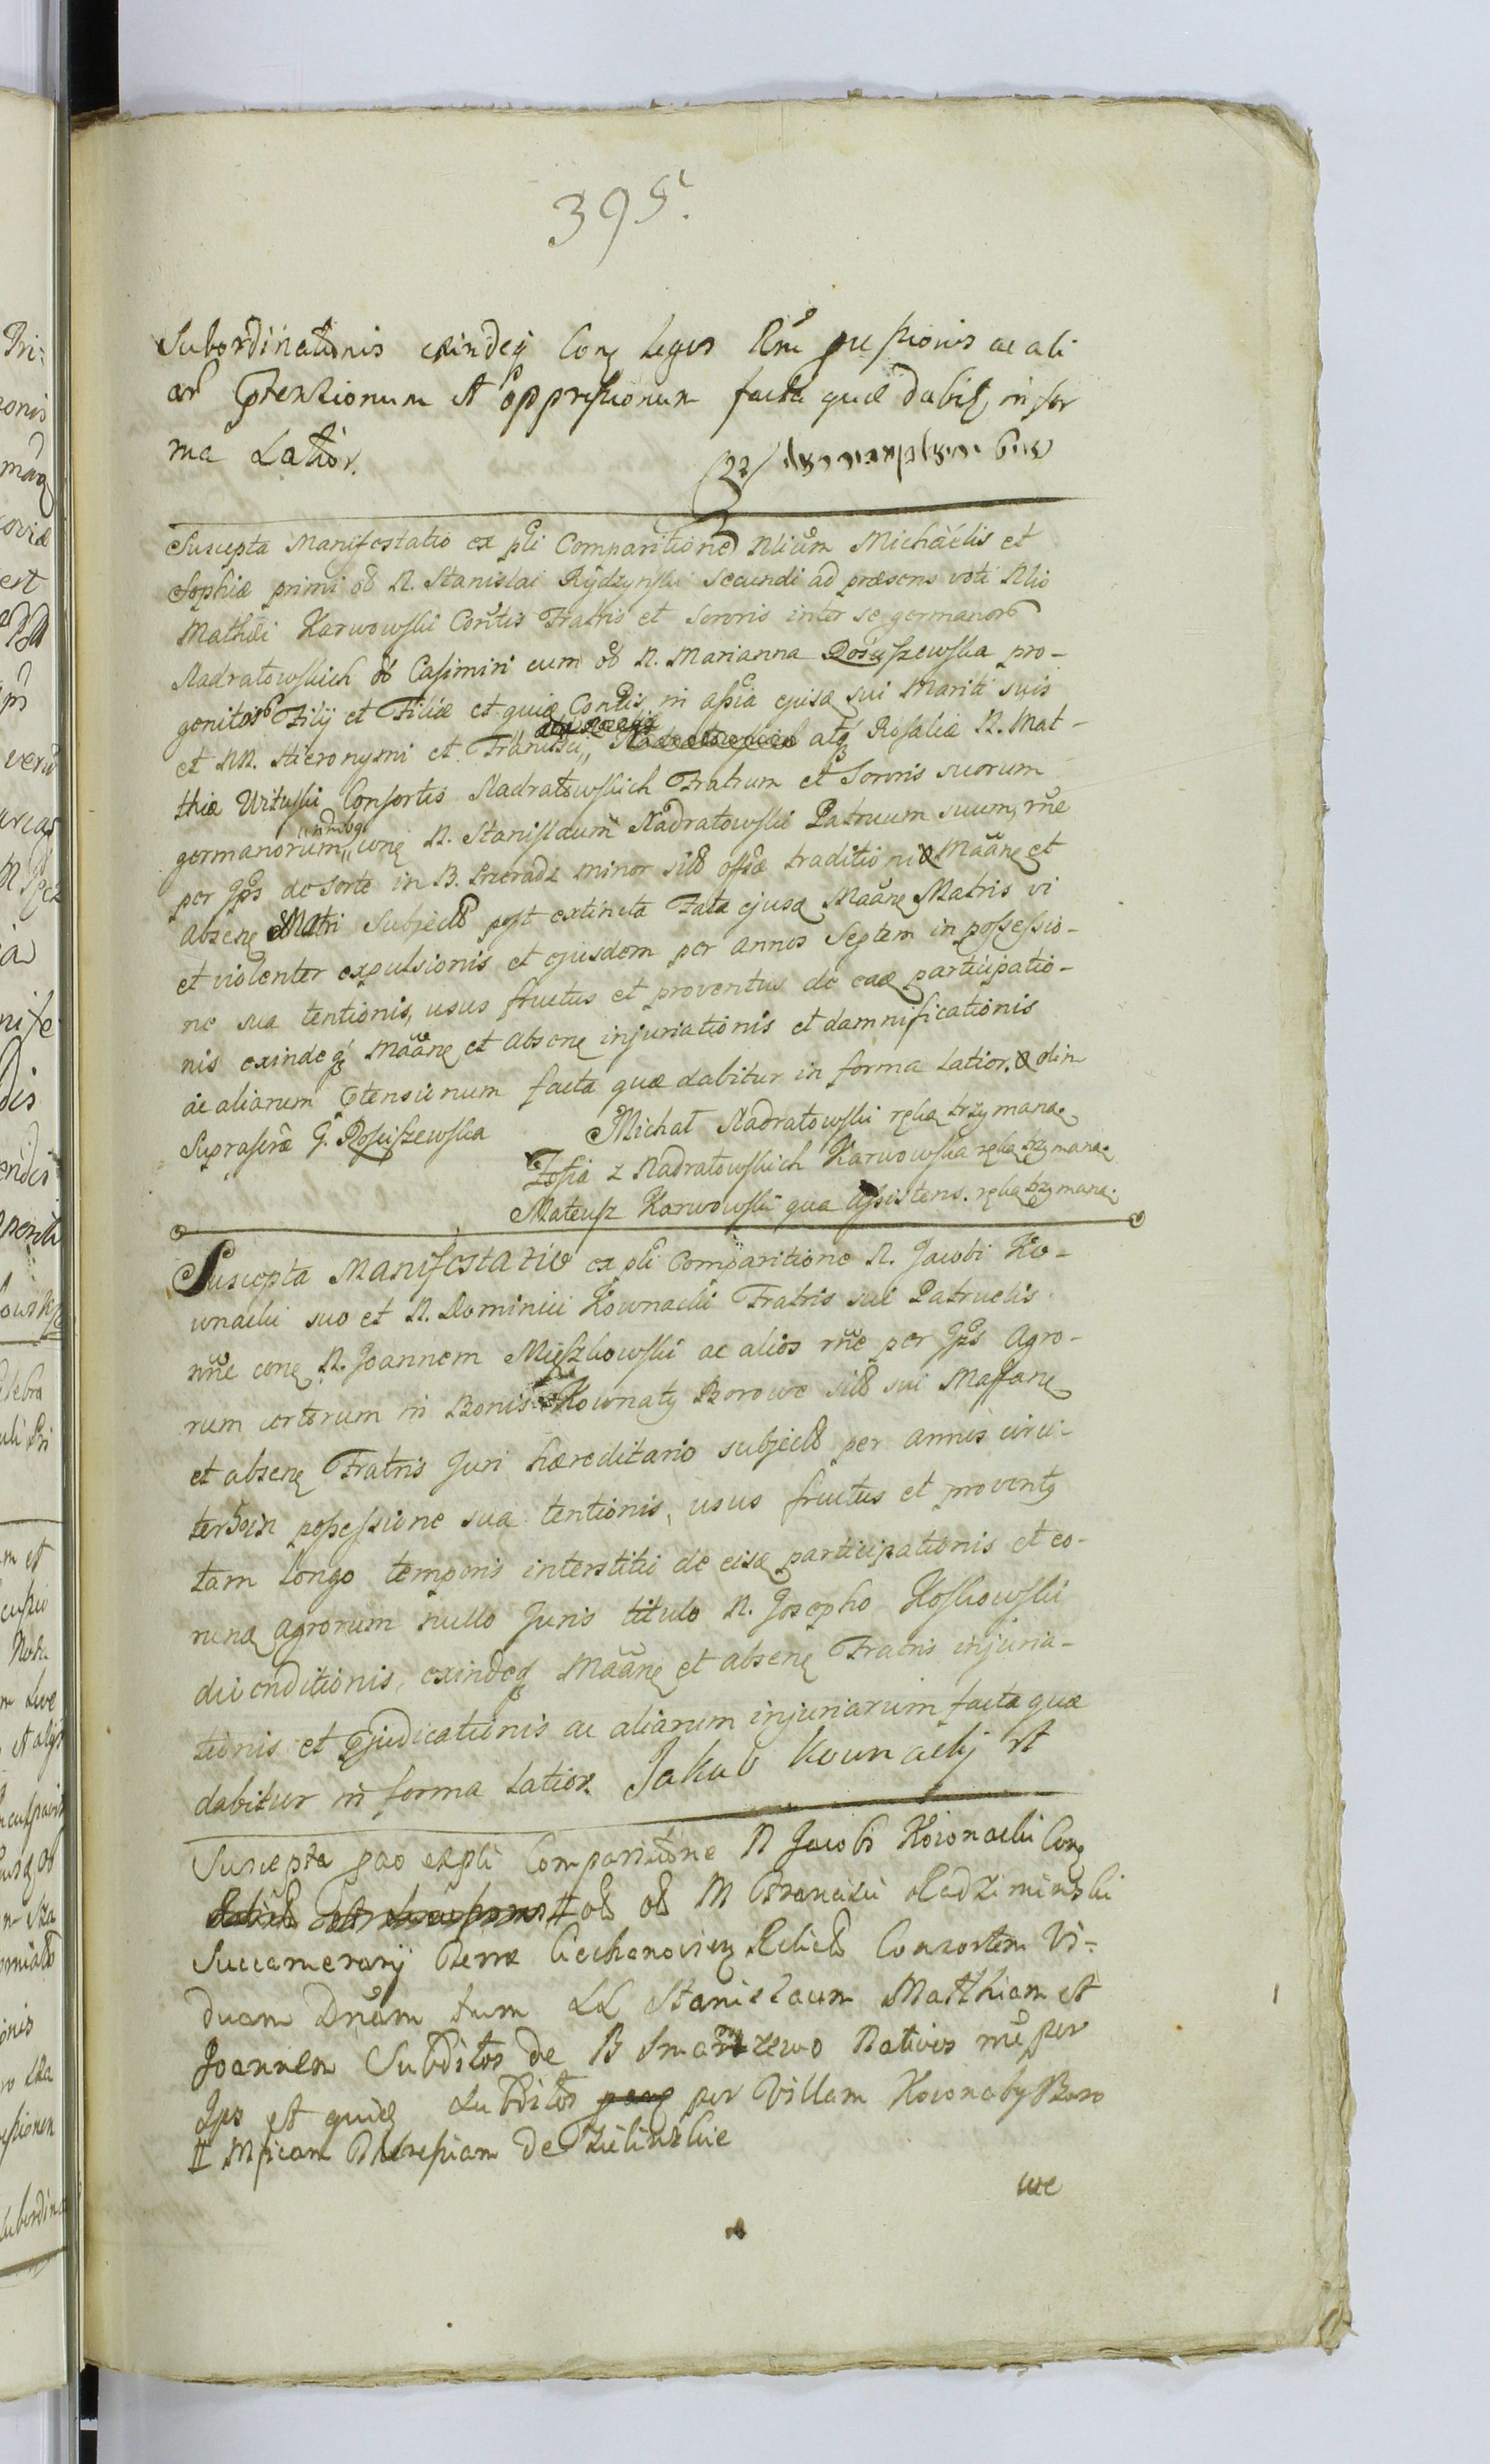 395.
Subordinationis exindeq Conq Leges Rni pressionis ac ali
ar Ptensionum et oppressionum facta quæ dabit in for
ma Latior.
Suscepta Manifestatio ex pli Comparitione Nlium Michaelis et
Sophiæ primi ob N. Stanislai Rydzynski secundi ad præsens voti Nlis
Mathæi Karwowski Contis Fratris et Sororis inter se germanor
Nadratowskich ob Casimiri cum ob N. Marianna Rosciszewska pro-
genitor Filij et Filiæ et quiæ Contis in assia ejusq sui Mariti suis
et NN. Hieronymi et Francisci, atq Rosaliæ N. Mat-
thiæ Wituski Consortis Nadratowskich Fratrum et Sororis suorum
germanorum conq N. Stanislaum Nadratowski Patruum suum, rne
per Jps de sorte in B. Szeradz minor sitis offiæ traditionis Maanq et
absenq Matri subject post extincta Fata ejusq Maanq Matris vi
et violenter expulsionis et ejusdem per annos septem in possessio-
ne sua tentionis, usus fructus et proventus de eaq participatio-
nis exindeq Maanq et absenq injuriationis et damnificationis
ac aliarum Ptensionum facta quæ dabitur in forma latior.
Suprascra G. Rosciszewska Michał Nadratowski ręką trzymaną
Zofia z Nadratowskich Karwowska ręką trzymaną
Mateusz Karwowski qua Assistens. ręką trzymaną.
Suscepta Manifestatio ex pli Comparitione N. Jacobi Ko-
wnacki suo et N. Dominici Kownacki Fratris sui Patruelis
nne conq N. Joannem Mieszkowski ac alios rne per Jps Agro-
rum certorum in Bonis Kownaty Borowe sitis sui Maanq
et absenq Fratris Juri hæreditario subject per annos circi-
ter in possessione sua tentionis, usus fructus et provent
tam longo temporis interstitio de eisq participationis et eo-
rumq agrorum nullo Juris titulo N. Josepho Koskowski
divenditionis, exindeq Maanq et absenq Fratris injuria-
tionis et Pjudicationis ac aliarum injuriarum facta quæ
dabitur in forma latior. Jakub Kownacky
Suscepta pao expli Comparitione N Jacobi Kownacki Conq
ob M Francisci Radziminski
Succamerarij Terræ Ciechanovien Relict Consortem Vi-
duam Dnam tum LL Stanislaum Matthiam et
Joannem Subditos de B Smarzewo Nativos rne per
Jps et quidq Subditos per Villam Kownaty Boro
II Mficam Theresiam de Zielinskie
we